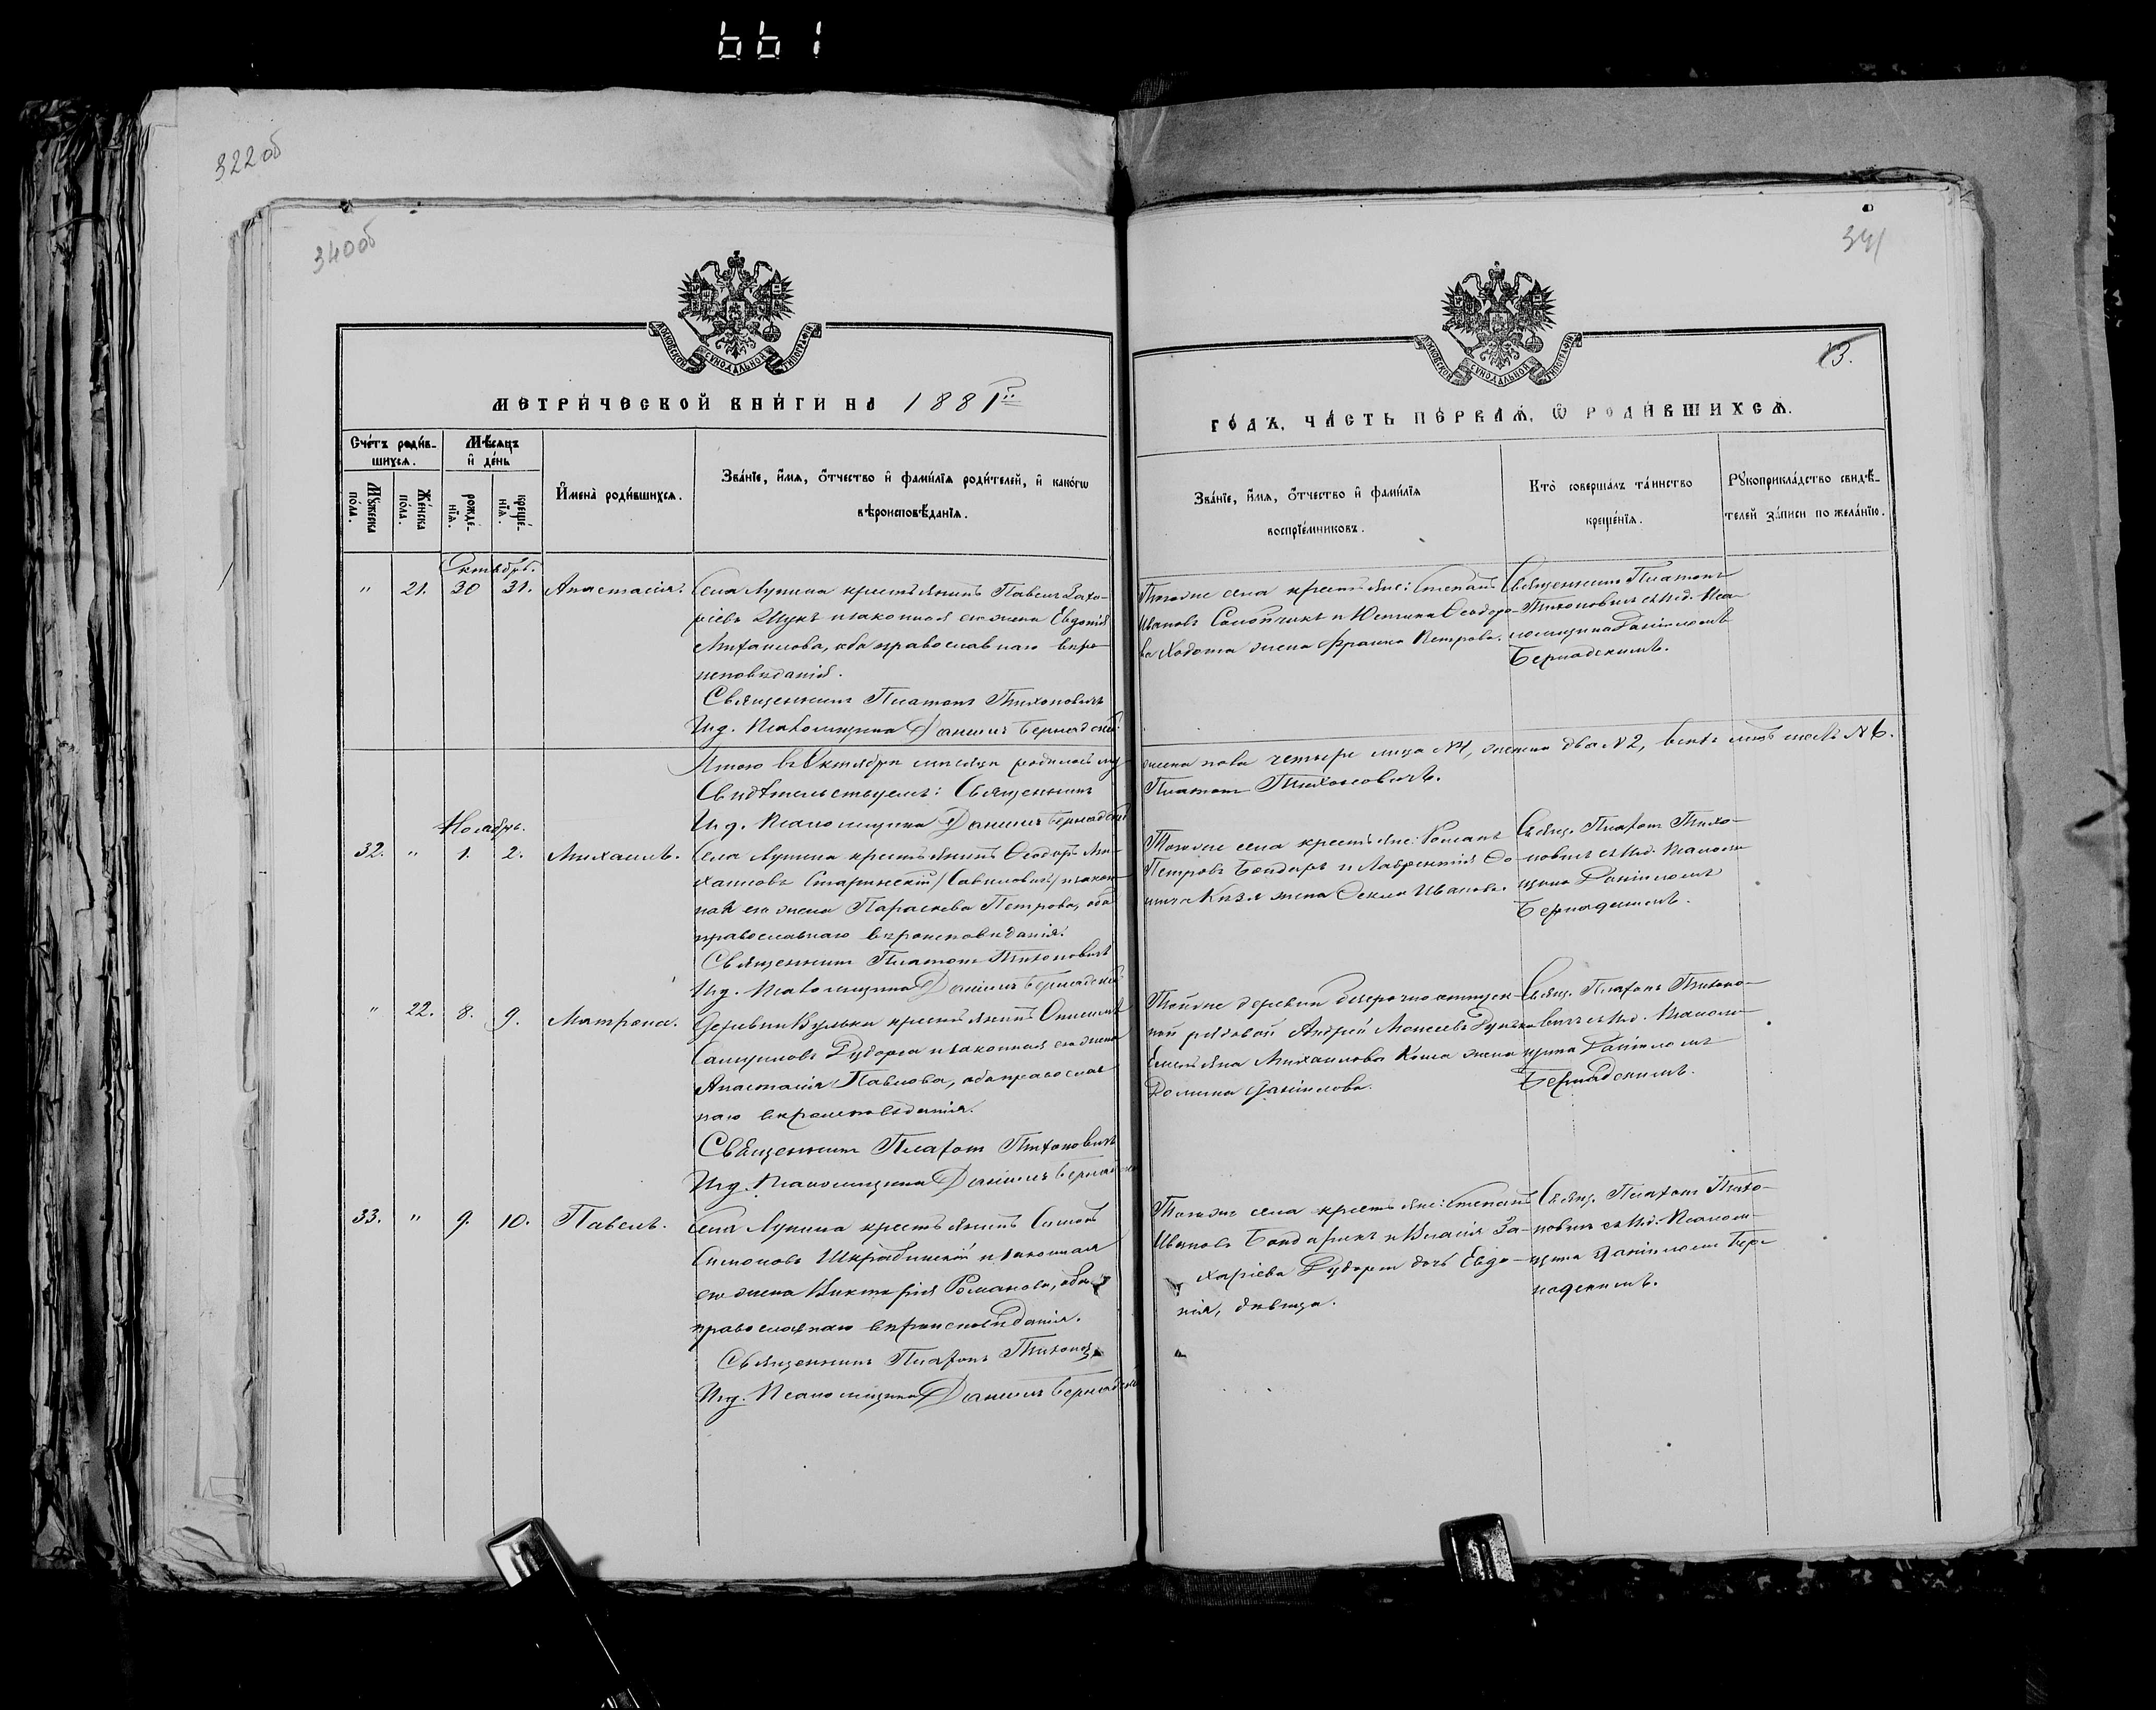 661
322об
340об
341
13.
МОСКОВСКОЙ СѴНОДАЛЬНОЙ ТИПОГРАФІИ
МОСКОВСКОЙ СѴНОДАЛЬНОЙ ТИПОГРАФІИ
МЕТРИ́ЧЕСКОЙ КНИ́ГИ НА 1881й
ГО́ДЪ, ЧА́СТЬ ПЕ́РВАѦ, Ѿ РОДИ́ВШИХСѦ.
Сче́тъ роди́в-
шихсѧ.
Мѣсѧцъ
и де́нь
Мꙋ́жеска по́ла.
Же́нска по́ла.
рожде́-нїѧ.
креще́-нїѧ.
Имена̀ роди́вшихсѧ.
Зва́нїе, и́мѧ, о́тчество и фами́лїѧ роди́телей, и како́гѡ
вѣроисповѣ́данїѧ.
Зва́нїе, и́мѧ, о́тчество и фами́лїѧ
воспрїе́мниковъ.
Кто̀ соверша́лъ та́инство
креще́нїѧ.
Рꙋкоприкла́дство свидѣ́-
телей за́писи по жела́нїю.
Октябрь.
" 21. 30 31. Анастасія.
Села Лунина крестьянинъ Павелъ Заха-
ріевъ Щукъ и законная его жена Евдокія
Михаилова, оба православнаго веро-
исповѣданія.
Священникъ Платонъ Тихоновичъ
И.д. Псаломщика Даніилъ Бернадскій
Того же села крестьяне: Степанъ
Ивановъ Самойликъ и Юстина Ѳеодоро-
ва Ходота жена Франка Петрова.
Священникъ Платонъ
Тихоновичъ съ И.д. Пса-
ломщика Даніиломъ
Бернадскимъ.
Итого въ Октябрѣ месяцѣ родилось му-
жеска пола четыре лица №4, женска два №2, всѣхъ лицъ шесть №6.
Свидѣтельствуемъ: Священникъ
Платонъ Тихоновичъ.
И.д. Псаломщика Даніилъ Бернадскій
Ноябрь.
32. " 1. 2. Михаилъ.
Села Лунина крестьянинъ Ѳеодоръ Ми-
хаиловъ Старинскій /Савиловичъ/ и закон-
ная его жена Параскева Петрова, оба
православнаго вероисповѣданія.
Священникъ Платонъ Тихоновичъ
И.д. Псаломщика Даніилъ Бернадскій
Того же села крестьяне: Романъ
Петровъ Бондаръ и Лаврентія
жена Ѳекла Иванова.
Свящ. Платонъ Тихо-
новичъ съ И.д. Псалом-
щика Даніиломъ
Бернадскимъ.
" 22. 8. 9. Матрона.
Деревни Вульки крестьянинъ Онисимъ
Самуиловъ Дудорга и законная его жена
Анастасія Павлова, оба православ-
наго вероисповѣданія.
Священникъ Платонъ Тихоновичъ
И.д. Псаломщика Даніилъ Бернадскій
Той же деревни безсрочно отпуск-
ной рядовой Андрей Моисеевъ
Емельяна Михаилова жена
Домина Даніилова.
Свящ. Платонъ Тихоно-
вичъ съ И.д. Псалом-
щика Даніиломъ
Бернадскимъ.
33. " 9. 10. Павелъ.
Села Лунина крестьянинъ Симонъ
Симоновъ Шкрабинскій и законная
его жена Викторія Романова, оба
православнаго вероисповѣданія.
Священникъ Платонъ Тихонов
И.д. Псаломщика Даніилъ Бернадскій
Того же села крестьяне: Степанъ
Ивановъ Бондарикъ и Власія За-
харіева Дудорги дочь Евдо-
кія, девица.
Свящ. Платонъ Тихо-
новичъ съ И.д. Псалом-
щика Даніиломъ Бер-
надскимъ.